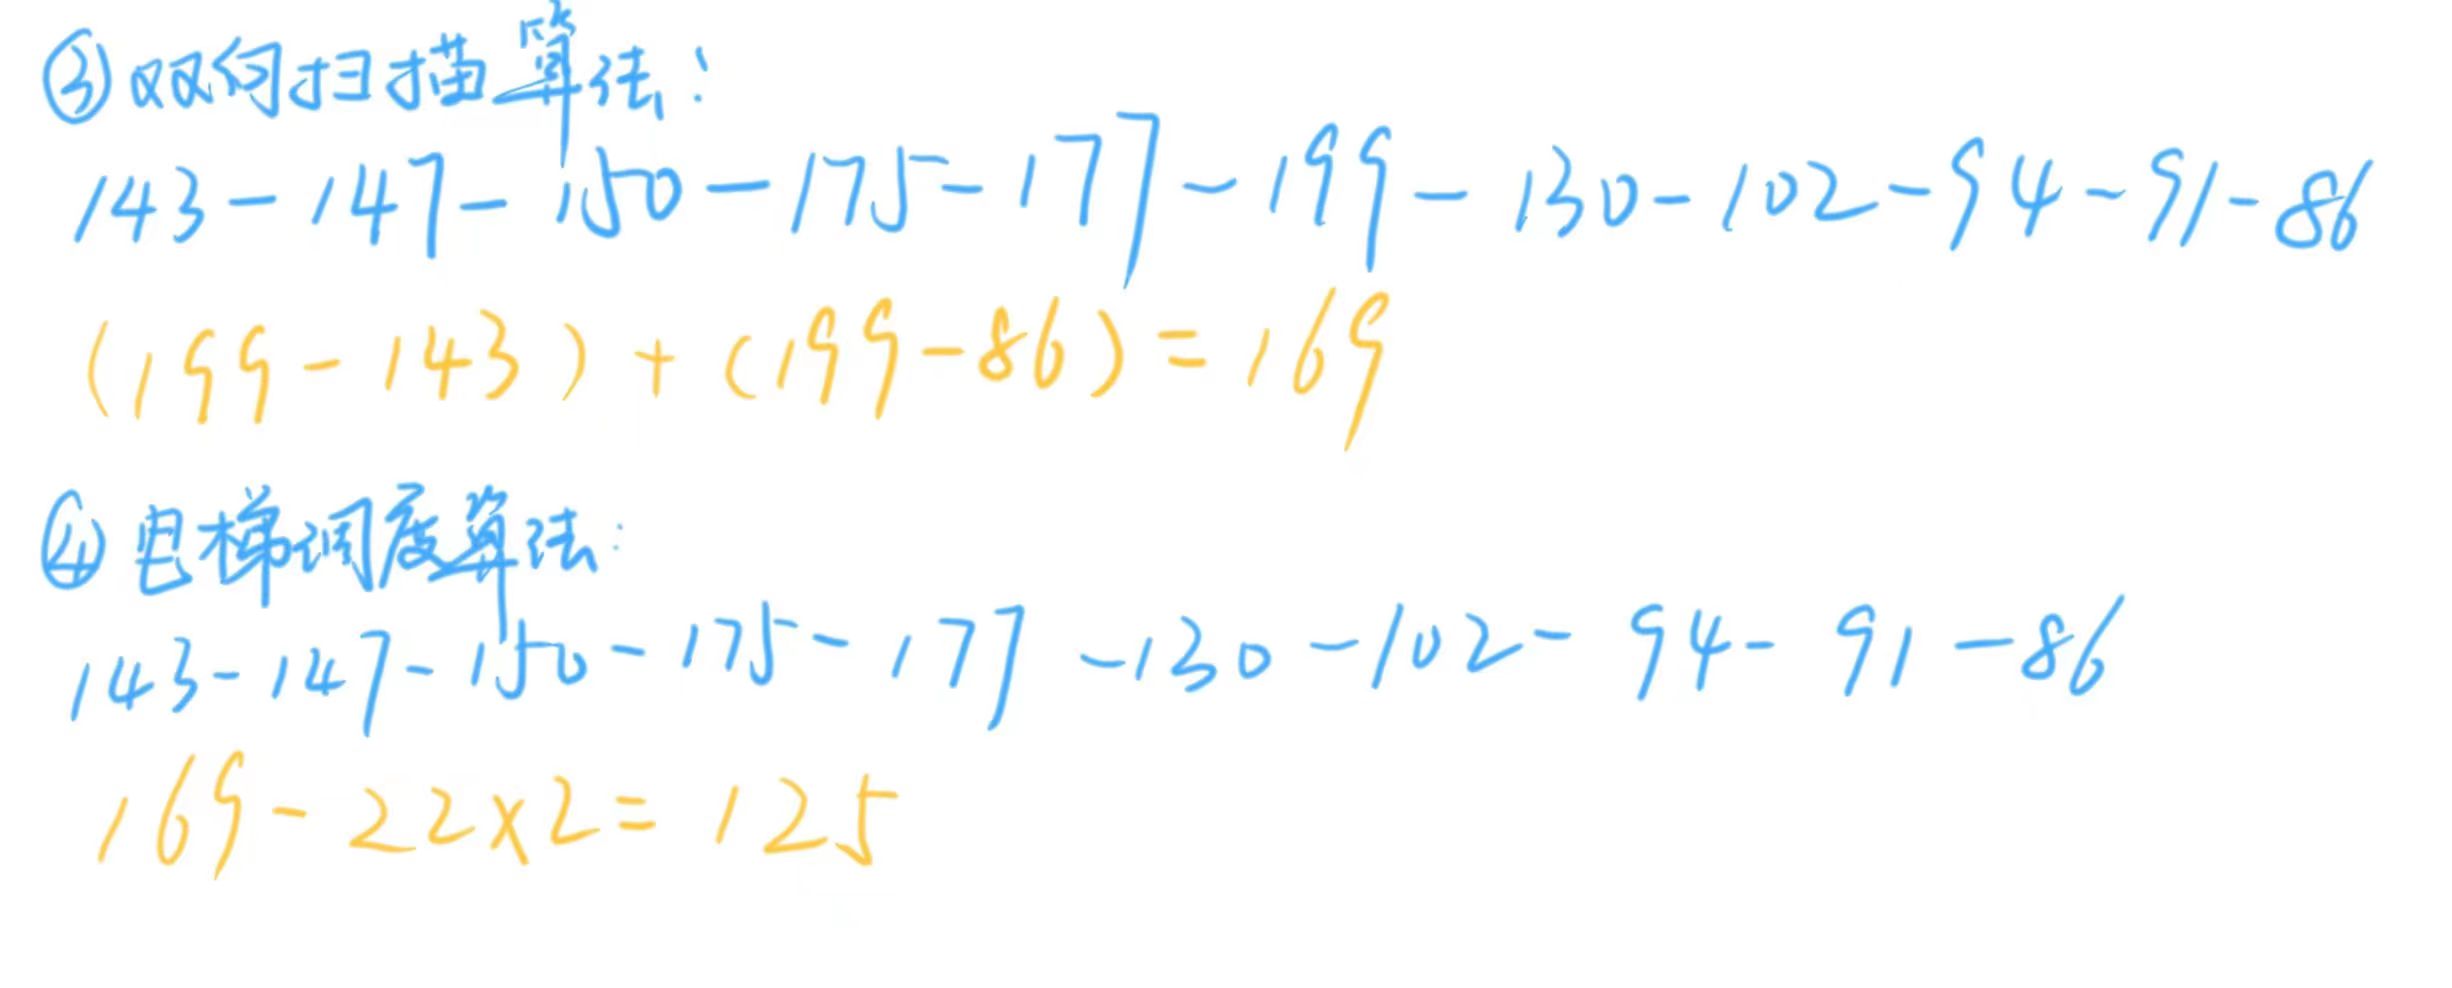 ③双向扫描算法：
143-147-150-175-177-199-130-102-94-91-86
(199-143)+(199-86)=169
④电梯调度算法：
143-147-150-175-177-130-102-94-91-86
169-22×2=125